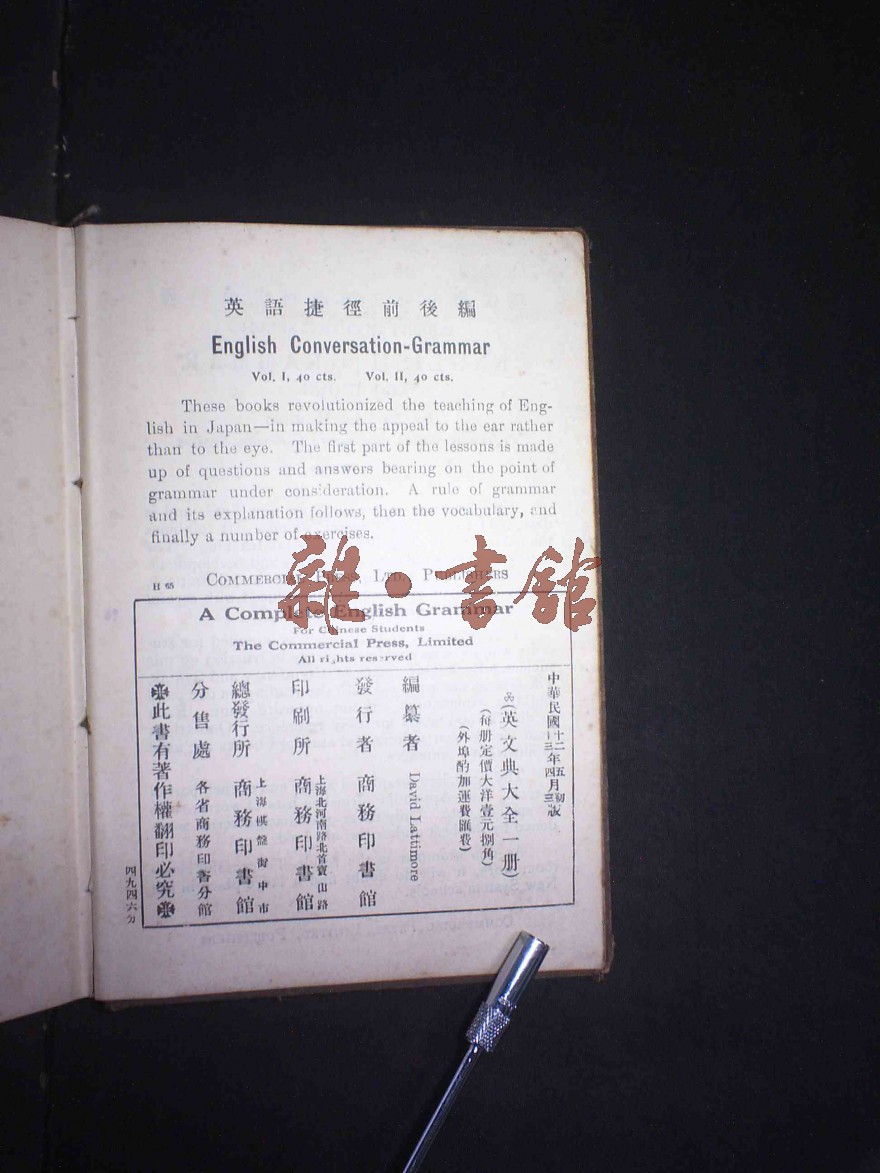 英語捷徑前後編
English Conversation-Grammar
Vol. I, 40 cts. Vol. II, 40 cts.
These books revolutionized the teaching of Eng-
lish in Japan—in making the appeal to the ear rather
than to the eye. The first part of the lessons is made
up of questions and answers bearing on the point of
grammar under consideration. A rule of grammar
and its explanation follows, then the vocabulary, and
finally a number of exercises.
COMMERCIAL PRESS, LTD., PUBLISHERS
H
雜·書館
A Complete English Grammar
For Chinese Students
The Commercial Press, Limited
All rights reserved
中華民國十二年五月初版
十三年四月三版
(英文典大全一册)
(每册定價大洋壹元捌角)
(外埠酌加運費匯費)
編纂者 David Lattimore
發行者 商務印書館
印刷所 上海北河南路北首寶山路 商務印書館
總發行所 上海棋盤街中市 商務印書館
分售處 各省商務印書分館
此書有著作權翻印必究
四九四六分